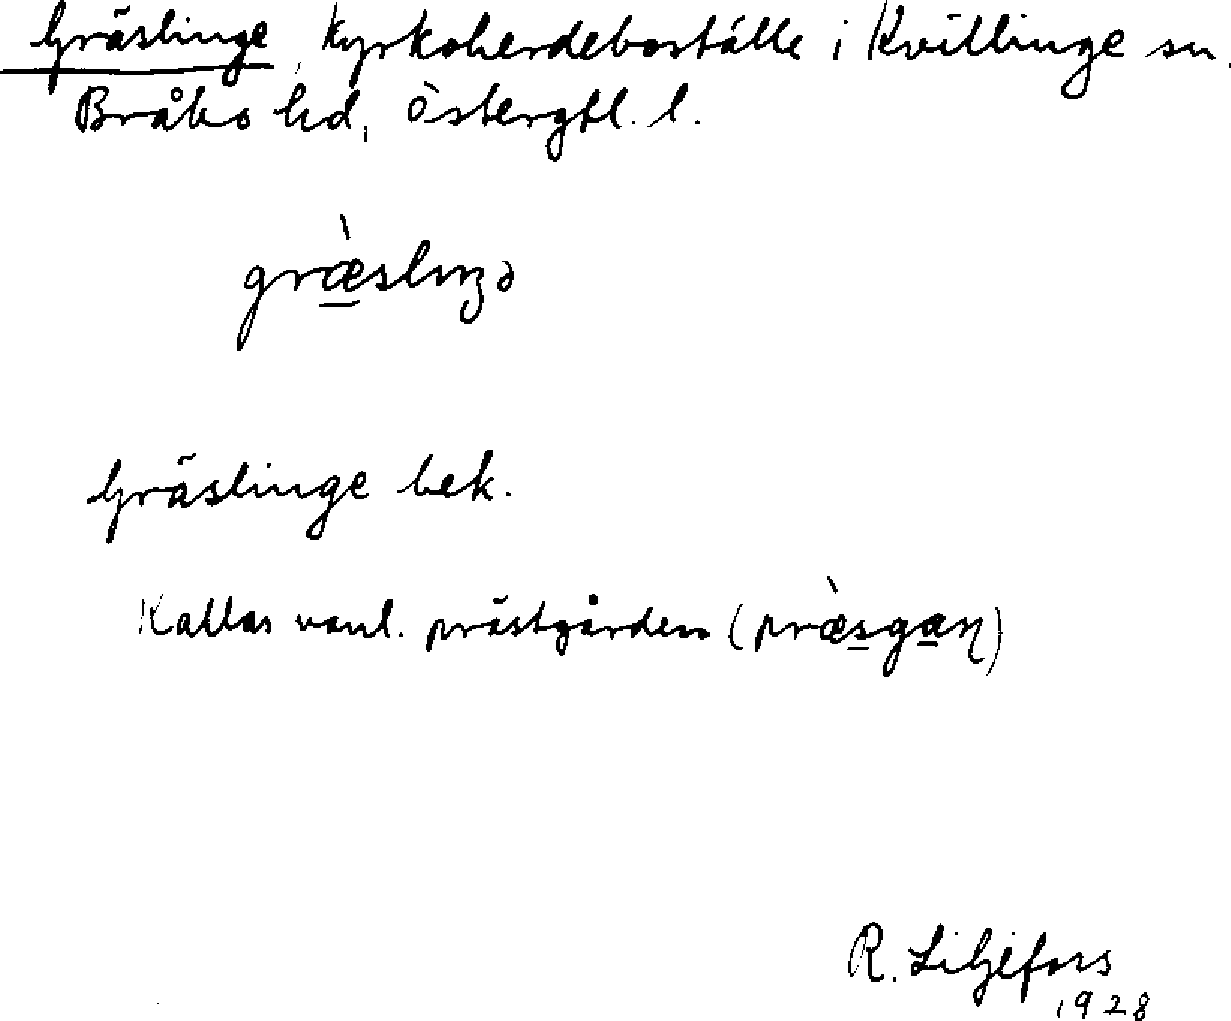 Gräslinge, Kyrkoherdeboställe i Kvillinge sn.
Bråbo hd, Östergtl. l.
græ̀slıŋə
Gräslinge bek.
Kallas vanl. prästgården (præ̀sgaɳ)
R. Liljefors
1928